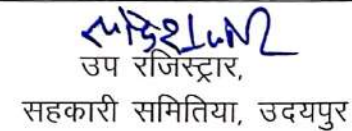 उप रजिस्ट्रार,
सहकारी समितिया, उदयपुर